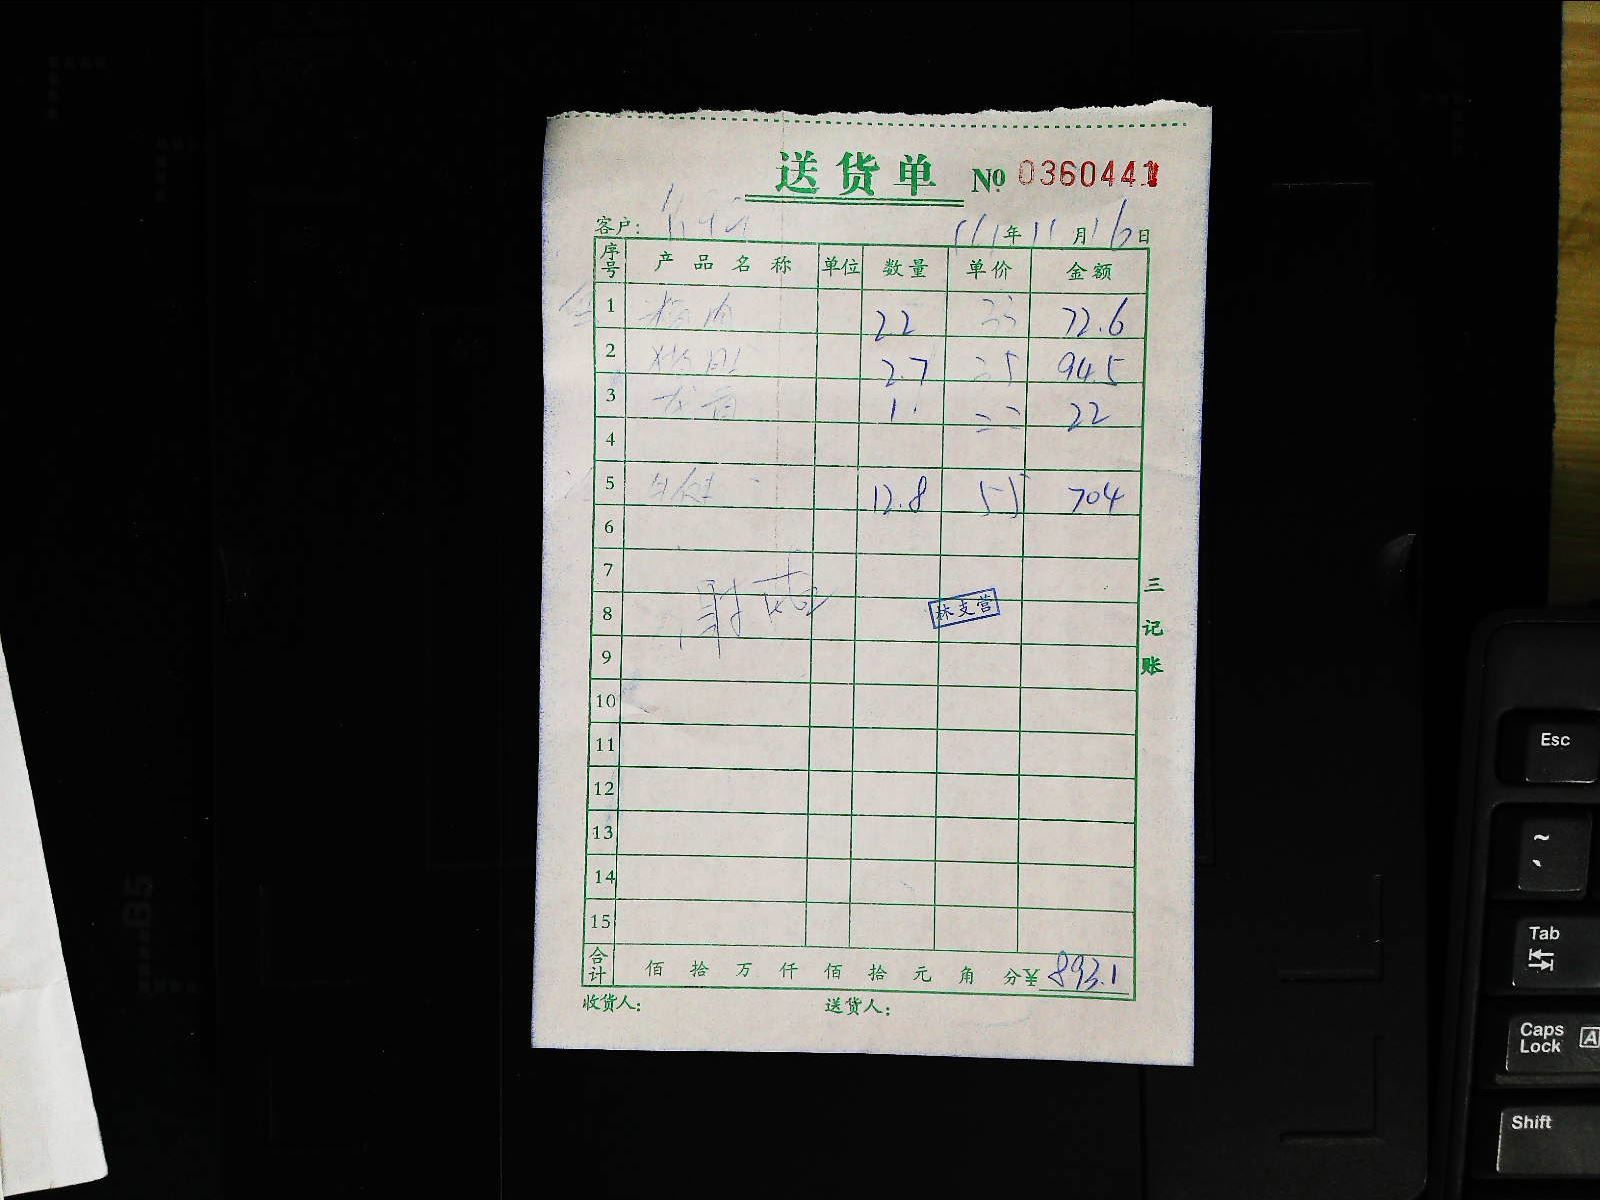 送货单 № 0360441
客户: 年11月16日
序号 产品名称 单位 数量 单价 金额
1 22 33 72.6
2 2.7 35 94.5
3 龙骨 1. 22 22
4
5 牛腱 12.8 55 704
6
7
8 林支营
9
10
11
12
13
14
15
合计 佰 拾 万 仟 佰 拾 元 角 分¥ 893.1
收货人: 送货人:
三记账
Esc
~
`
Tab
Caps Lock A
Shift
B5